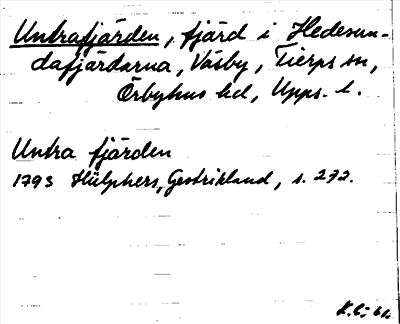 Untrafjärden, fjärd i Hedesun-
dafjärdarna, Väsby, Tierps sn,
Örbyhus hd, Upps. l.
Untra fjärden
1793 Hülphers, Gestrikland, s. 272.